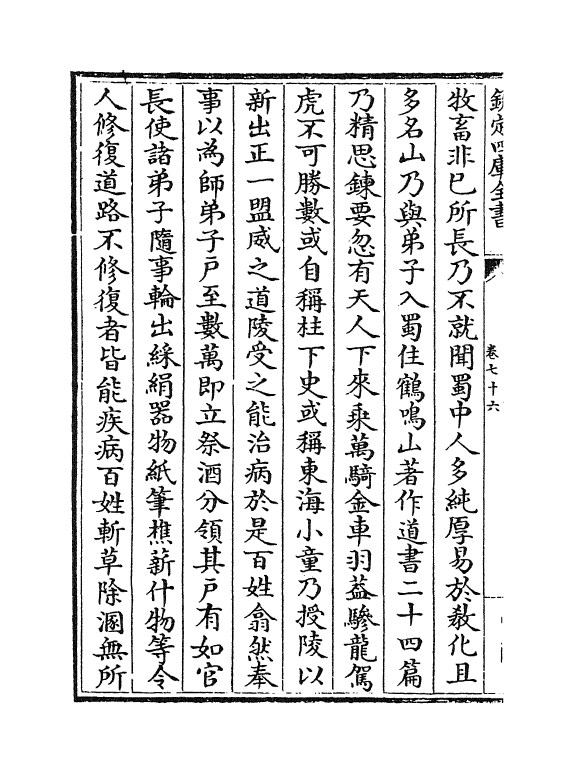 欽定四庫全書
卷七十六
牧畜非已所長乃不就聞蜀中人多純厚易於教化且
多名山乃與弟子入蜀住鶴鳴山著作道書二十四篇
乃精思鍊要忽有天人下來乘萬騎金車羽葢驂龍駕
虎不可勝數或自稱柱下史或稱東海小童乃授陵以
新出正一盟威之道陵受之能治病於是百姓翕然奉
事以為師弟子戸至數萬即立祭酒分領其戸有如官
長使諸弟子隨事輪出綵絹器物紙筆樵薪什物等令
人修復道路不修復者皆能疾病百姓斬草除溷無所